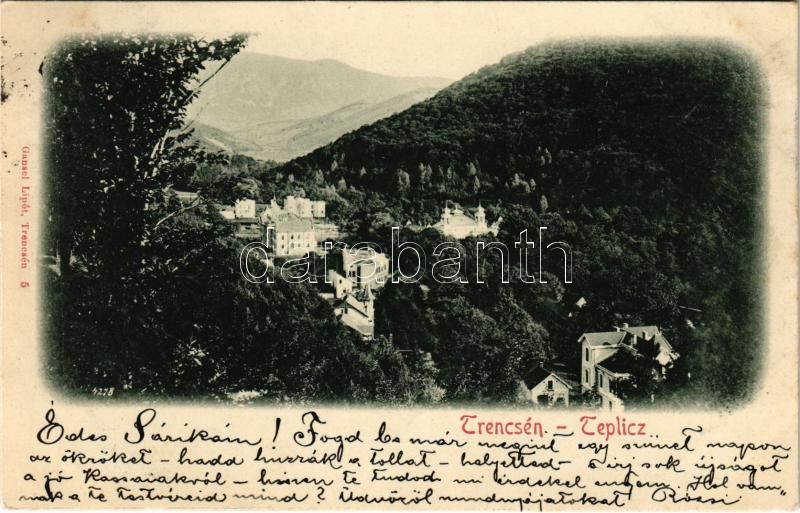 Gansel Lipót, Trencsén 5
darabanth
Trencsén. - Teplicz
Édes Sárikám! Fogd be már megint egy szünet napon
az ökröket - hadd huzzák a tollat - helyetted - s irj sok újságot
a jó Kassaiakról - hiszen te tudod mi érdekel engem. Hol van-
nak a te testvéreid mind? Üdvözöl mindnyájatokat Rózsi